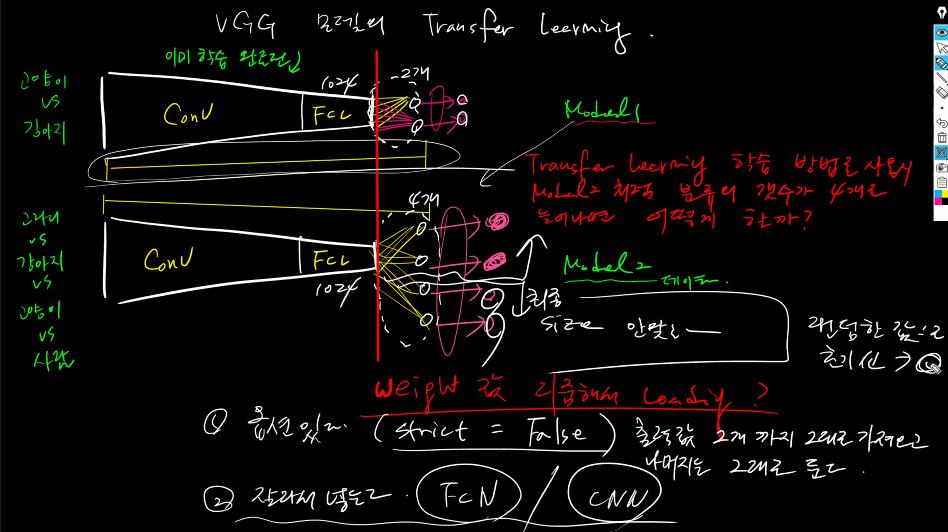 VGG 모델의 Transfer Learning.
이미 학습 완료된
고양이
vs
강아지
ConV
FCL
1024
2개
Model1
Transfer Learning 학습 방법을 사용시
Model2 최종 분류의 갯수가 4개로
늘어나면 어떻게 할까?
고라니
vs
강아지
vs
고양이
vs
사람
ConV
FCL
1024
4개
Model2
데이터
최종
size 안맞으
랜덤한 값으로
초기산 →
weight 값 Loading ?
① 옵션 있다. (strict = False)
출력값 2개 까지 그대로 가져오고
나머지는 그대로 둔다.
② 잘라서 넣는다. FCN / CNN